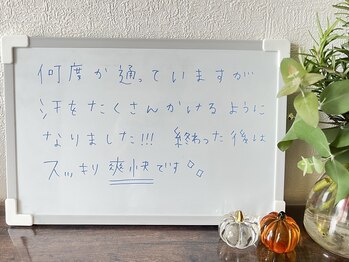 何度か通っていますが
汗をたくさんかけるように
なりました!!! 終わった後は
スッキリ爽快です。